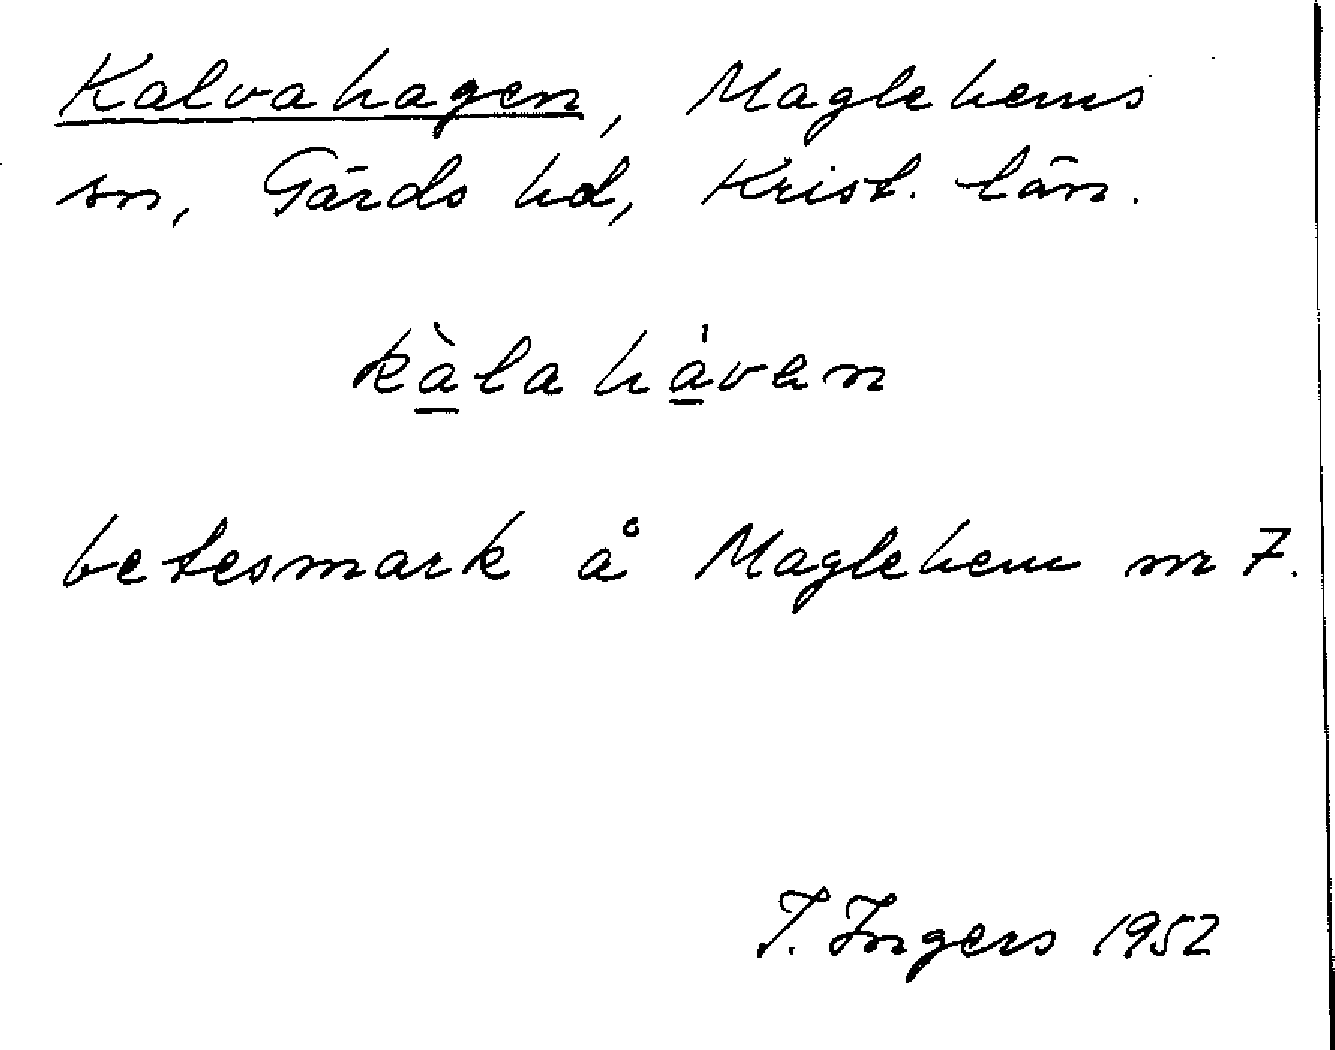 Kalvahagen, Maglehems
sn, Gärds hd, Krist. län.
kàlahávan
betesmark å Maglehem nr 7.
I. Ingers 1952